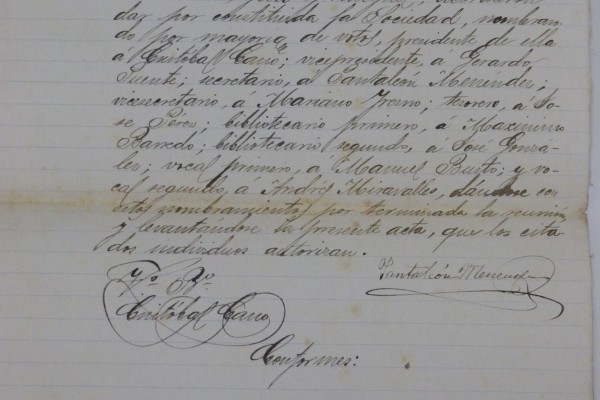 dar por constituida la Sociedad, nombran-
do por mayoria de votos, presidente de ella
á Cristóbal Cano; vicepresidente, á Gerardo
Puente; secretario, á Pantaleón Menéndez;
vicesecretario, á Mariano ; tesorero, á Jo-
se Pérez; bibliotecario primero, á Maximino
Barredo; bibliotecario segundo, á José Gonzá-
lez; vocal primero, á Manuel Busto; y vo-
cal segundo, á Andrés Miravalles, dandose con
estos nombramientos por terminada la reunión
y levantándose la presente acta, que los cita-
dos individuos autorizan.
Pantaleón Menendez
Vº. Bº.
Cristóbal Cano
Conformes: